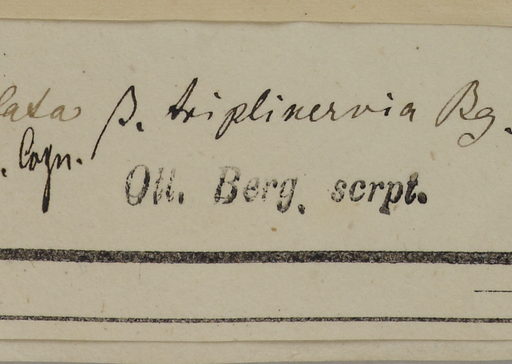 lata β. triplinervia Bg.
. Cogn.
Ott. Berg. scrpt.